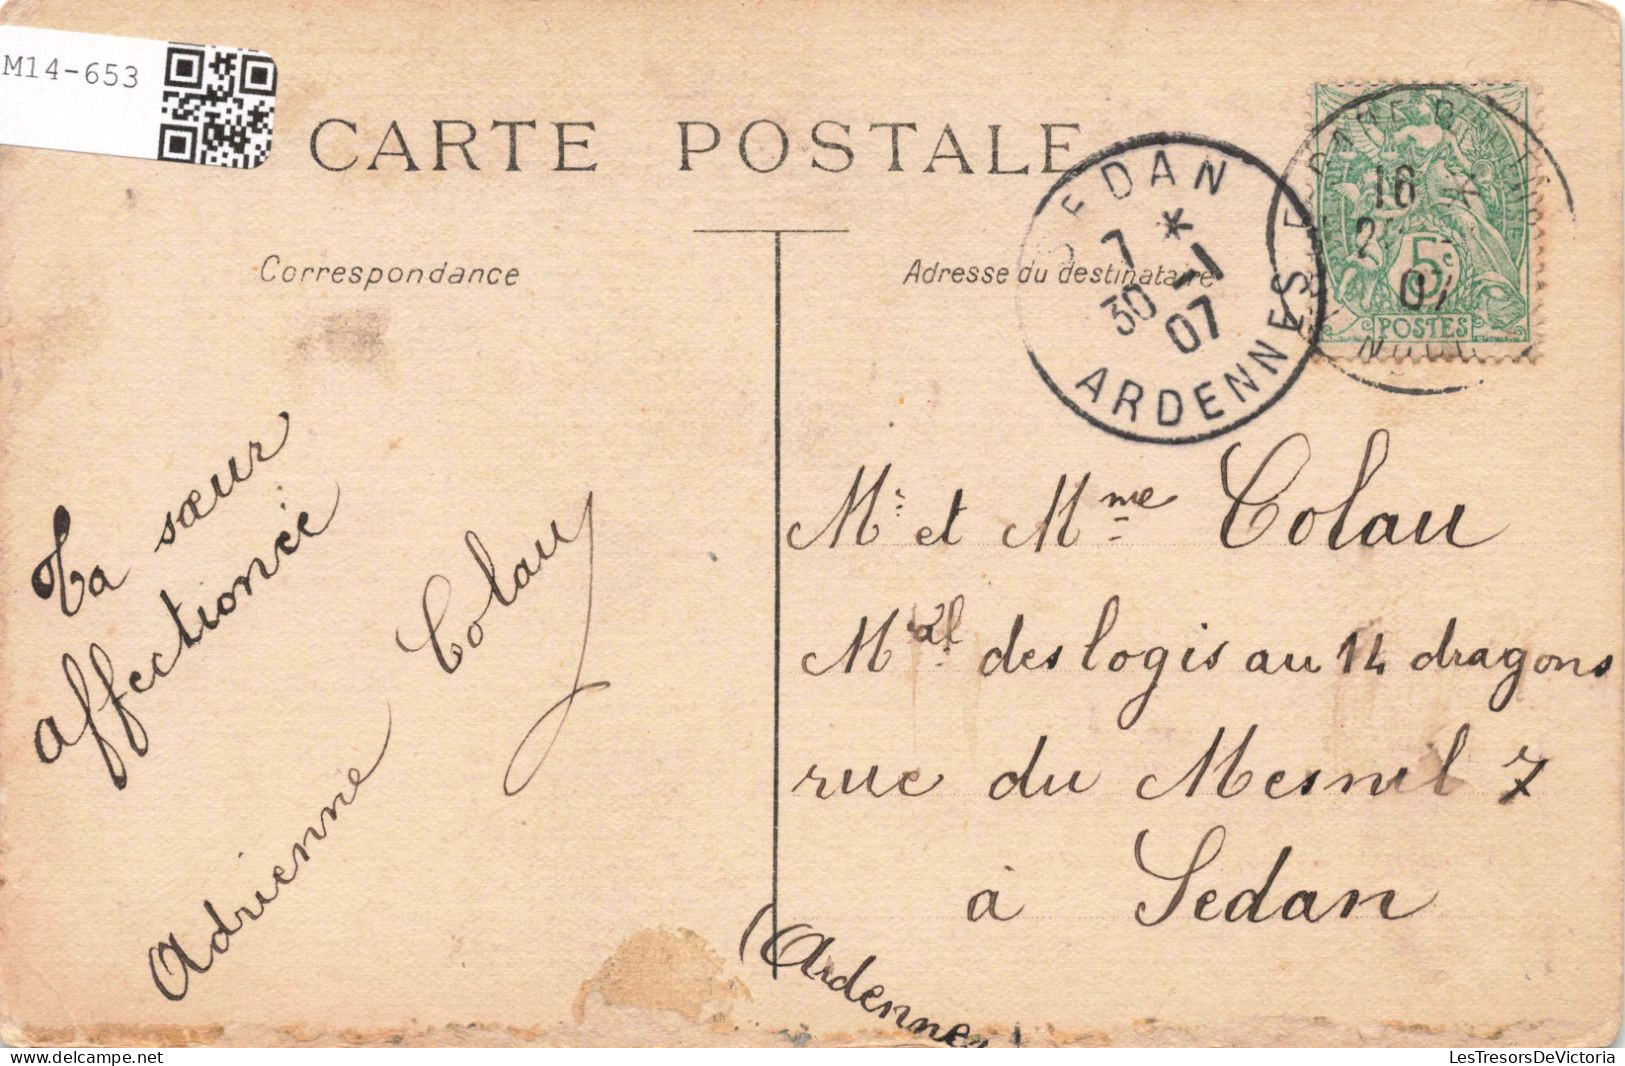 M14-653
CARTE POSTALE
Correspondance
Adresse du destinataire
SEDAN
7 *
30 -1
07
ARDENNES
16 *
07
5c
POSTES
Ta sœur
affectionéé
Adrienne Colau
Mr et Mme Colau
Mal des logis au 14 dragons
rue du Mesnil 7
à Sedan
(Ardennes
LesTresorsDeVictoria